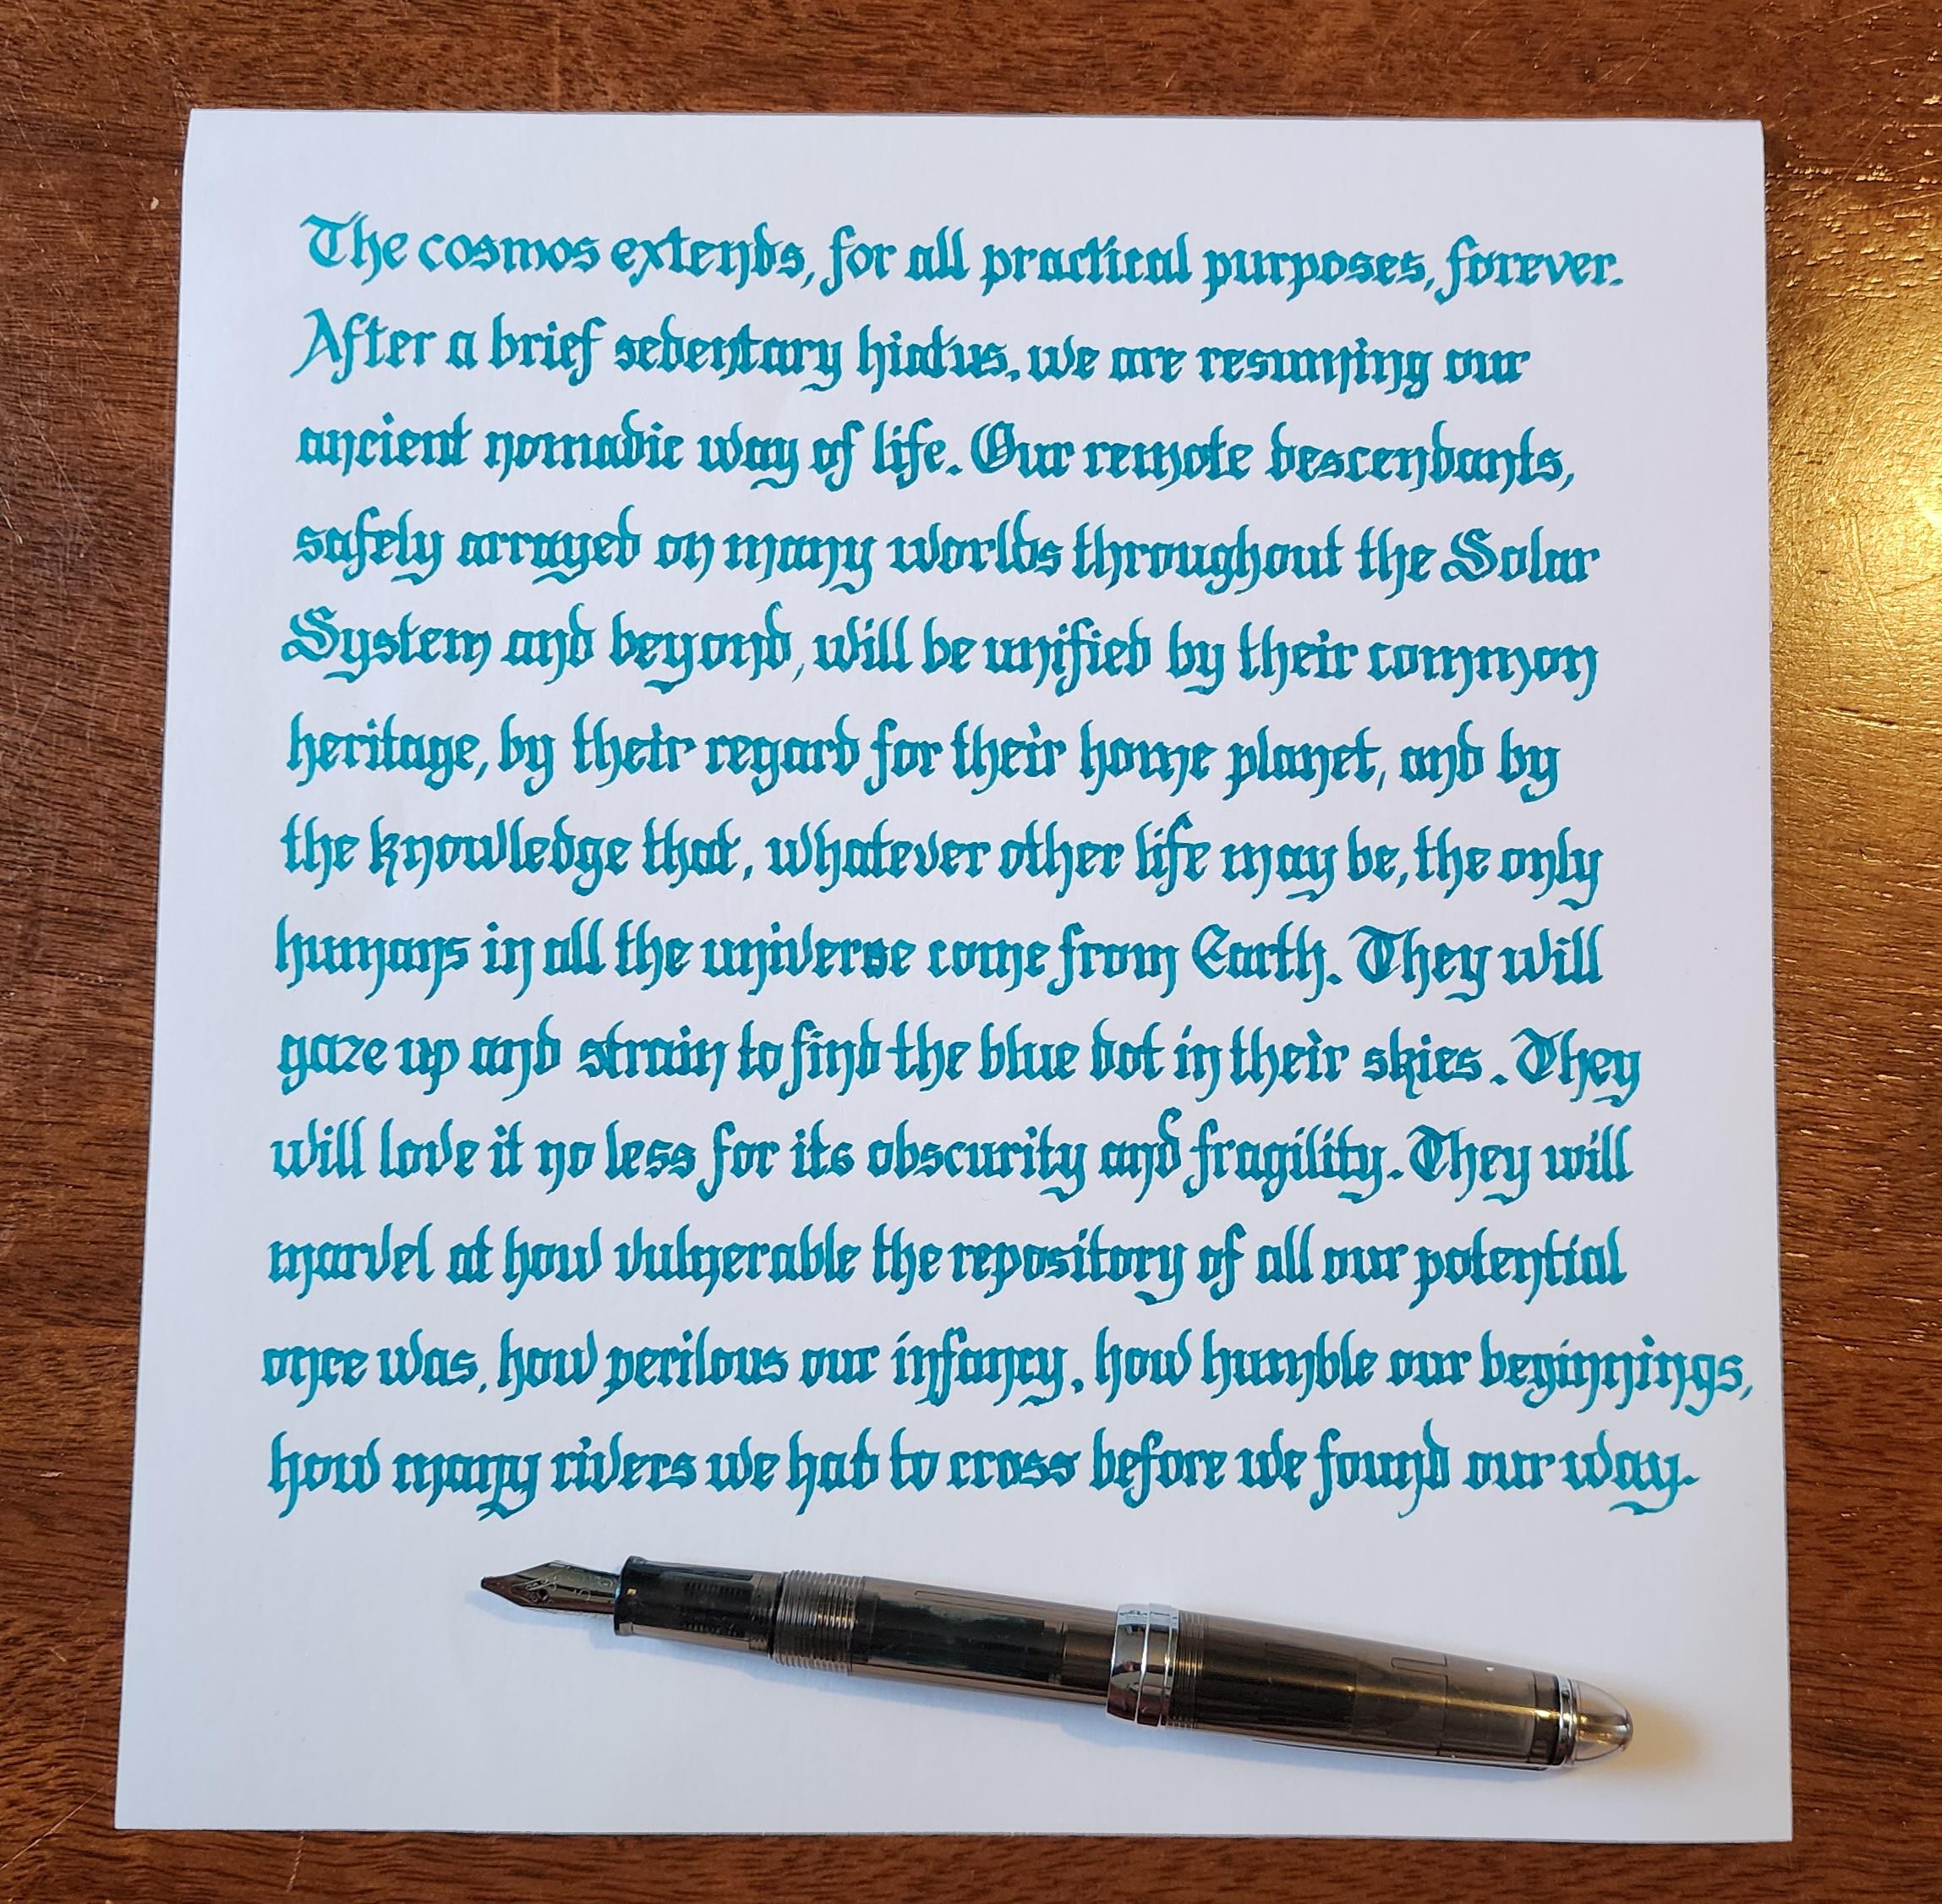 The cosmos extends, for all practical purposes, forever.
After a brief sedentary hiatus, we are resuming our
ancient nomadic way of life. Our remote descendants,
safely arrayed on many worlds throughout the Solar
System and beyond, will be unified by their common
heritage, by their regard for their home planet, and by
the knowledge that, whatever other life may be, the only
humans in all the universe come from Earth. They will
gaze up and strain to find the blue dot in their skies. They
will love it no less for its obscurity and fragility. They will
marvel at how vulnerable the repository of all our potential
once was, how perilous our infancy, how humble our beginnings,
how many rivers we had to cross before we found our way.